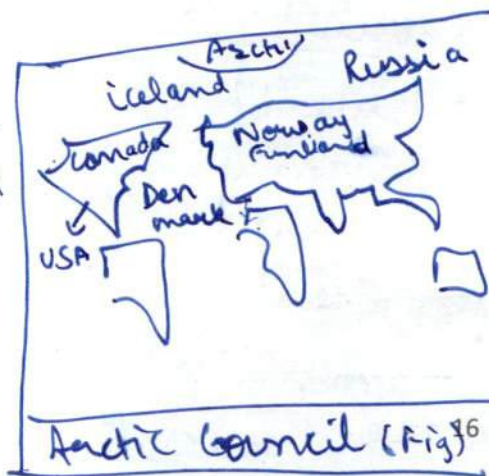 Arctic
iceland
Russia
Canada
Norway
Funland
Den
mark
USA
Arctic Council (Fig)
16